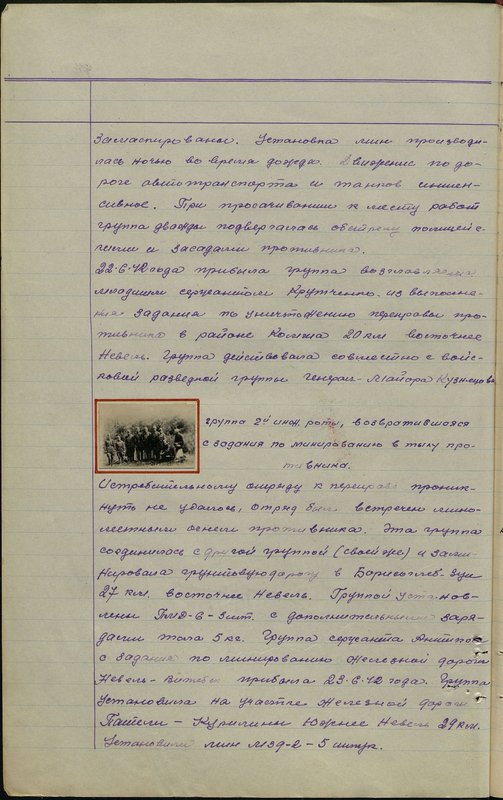 Замаскированы. Установка мин производи-
лась ночью во время дождя. Движение по до-
роге автотранспорта и танков интен-
сивное. При просачивании к месту работ
группа дважды подвергалась обстрелу полицей-
скими и засадами противника.
22.6.42 года прибыла группа возглавляемая
младшим сержантом Крутченко из выполне-
ния задания по уничтожению переправы про-
тивника в районе Комша 20 км восточнее
Невель. Группа действовала совместно с войс-
ковой разведной группы Генерал-Майора Кузнецова
группа 2й инж. роты, возвратившаяся
с задания по минированию в тылу про-
тивника.
Истребительному отряду к переправе проник-
нуть не удалось, отряд был встречен мино-
метным огнем противника. Эта группа
соединилась с другой группой (своей же) и зами-
нировала грунтовую дорогу в Борисоглеб-
27 км. восточнее Невель. Группой установ-
лены ПМД-6-3шт. с дополнительными заря-
дами тола 5 кг. Группа сержанта
с задания по минированию железной дороги
Невель-Витебск прибыла 23.6.42 года. Группа
установила на участке железной дороги
Пашели - Курилини Южнее Невель 29 км.
Установили мин МЗД-2-5 штук.